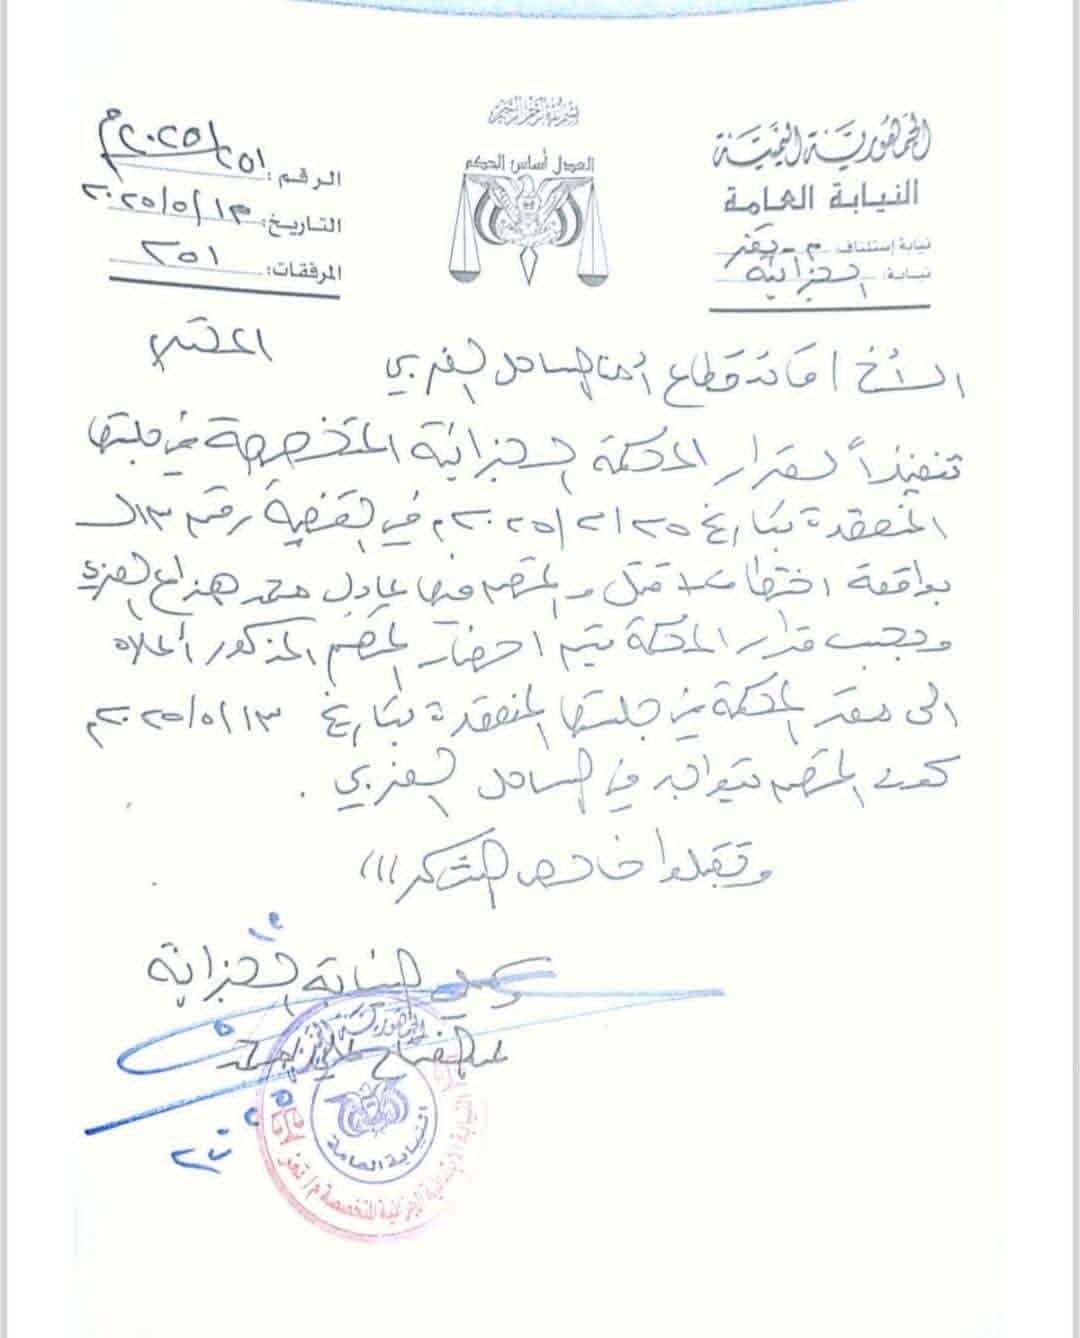 بسم الله الرحمن الرحيم
الجمهورية اليمنية
النيابة العامة
نيابة إستئناف م - تعز
نيابة: الجزائية
العدل أساس الحكم
الرقم: ٢٥١/٢٠٢٥م
التاريخ: ١٣/٥/٢٠٢٥
المرفقات: ٢٥١
الأخ / قائد قطاع أمن الساحل الغربي المحترم
تنفيذاً لقرار المحكمة الجزائية المتخصصة في جلستها
المنعقدة بتاريخ ٢٥/٢/٢٠٢٥م في القضية رقم
بواقعة قتل والمتهم فيها عادل محمد هزاع
وبموجب قرار المحكمة يتم احضار المتهم المذكور أعلاه
الى مقر المحكمة في جلستها المنعقدة بتاريخ ١٣/٥/٢٠٢٥م
كون المتهم يتواجد في الساحل الغربي .
وتقبلوا خالص الشكر ،،،
وكيل النيابة الجزائية
الجمهورية اليمنية
النيابة العامة
النيابة الابتدائية الجزائية المتخصصة م/تعز